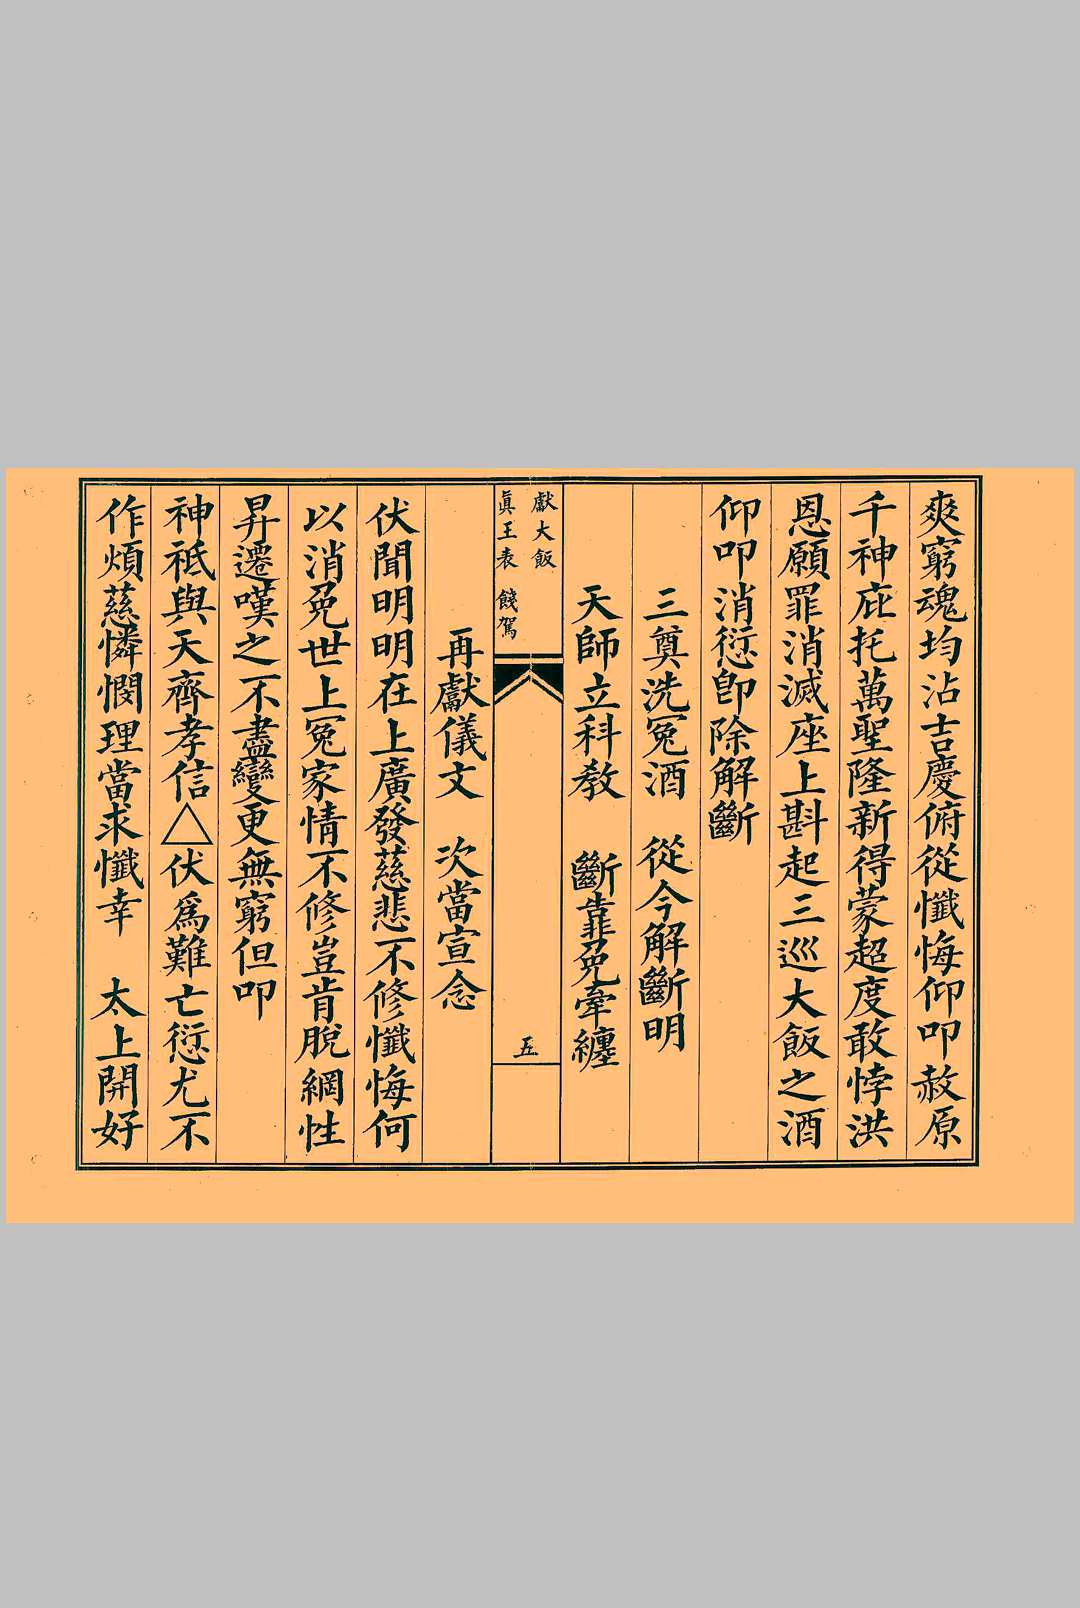 爽窮魂均沾吉慶俯從懺悔仰叩赦原
千神庇托萬聖隆新得蒙超度敢悖洪
恩願罪消滅座上斟起三巡大飯之酒
仰叩消愆卽除解斷
三奠洗冤酒　從今解斷明
天師立科教　斷靠免牽纏
獻大飯
眞王表　餞駕
五
再獻儀文　次當宣念
伏聞明明在上廣發慈悲不修懺悔何
以消免世上冤家情不修豈肯脫綱性
昇遷嘆之不盡變更無窮但叩
神祇與天齊孝信△伏爲難亡愆尤不
作煩慈憐憫理當求懺幸　太上開好